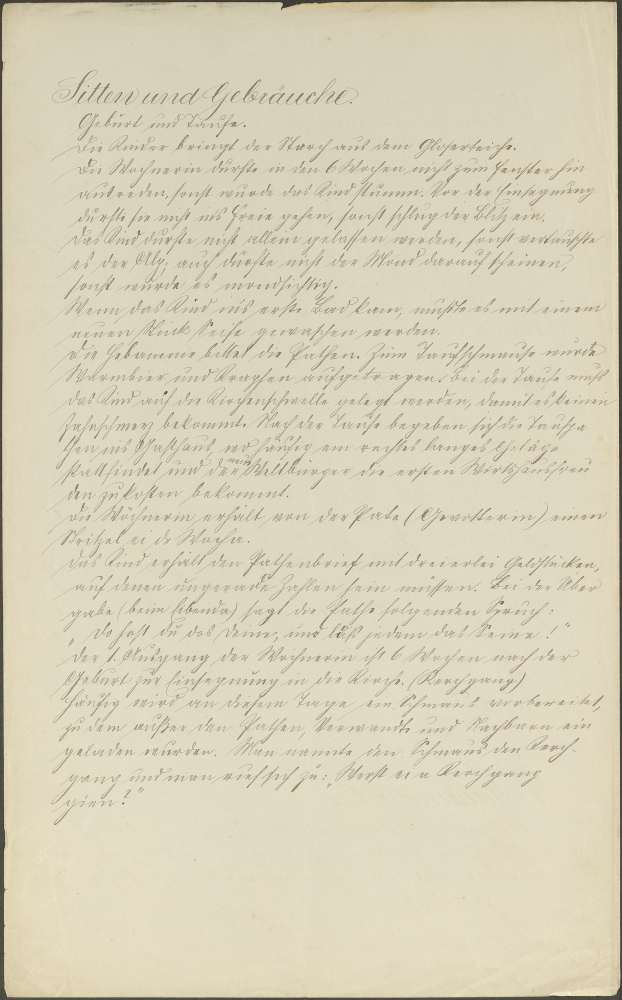 Sitten und Gebräuche.
Geburt und Taufe.
Die Kinder bringt der Storch aus dem Gloserteiche.
Die Wöchnerin durfte in den 6 Wochen nicht zum Fenster hin
ausreden, sonst wurde das Kind stumm. Vor der Einsegnung
durfte sie nicht ins Freie gehen, sonst schlug der Blitz ein.
Das Kind durfte nicht allein gelassen werden, sonst vertauschte
es der Alp, auch durfte nicht der Mond darauf scheinen,
sonst wurde es mondsichtig.
Wenn das Kind ins erste Bad kam, mußte es mit einem
neuen Stück Seife gewaschen werden.
Die Hebamme bittet die Pathen. Zum Taufschmause wurde
Warmbier und Kraphen aufgetragen. Bei der Taufe muß
das Kind auf die Kirchenschwelle gelegt werden, damit es keinen
Zahnschmerz bekommt. Nach der Taufe begeben sich die Taufpa
then ins Gasthaus, wo häufig ein rechtes langes Gelage
stattfindet und der neue Weltbürger die ersten Wirtshausfreu
den zu kosten bekommt.
Die Wöchnerin erhält von der Pate (Gevatterin) einen
Stritzel ei de Wocha.
Das Kind erhält den Pathenbrief mit dreierlei Geldstücken,
auf denen ungerade Zahlen sein müssen. Bei der Über
gabe (beim Eibenda) sagt die Pathe folgenden Spruch:
„Do host du das Deine, und laß jedem das Seine!“
Der 1. Ausgang der Wöchnerin ist 6 Wochen nach der
Geburt zur Einsegnung in die Kirche. (Kerchgang)
Häufig wird an diesem Tage ein Schmaus vorbereitet,
zu dem außer den Pathen, Verwandte und Nachbarn ein
geladen wurden. Man nannte den Schmaus den Kerch-
gang und man rief sich zu: „Werst ei a Kerchgang
gien?“